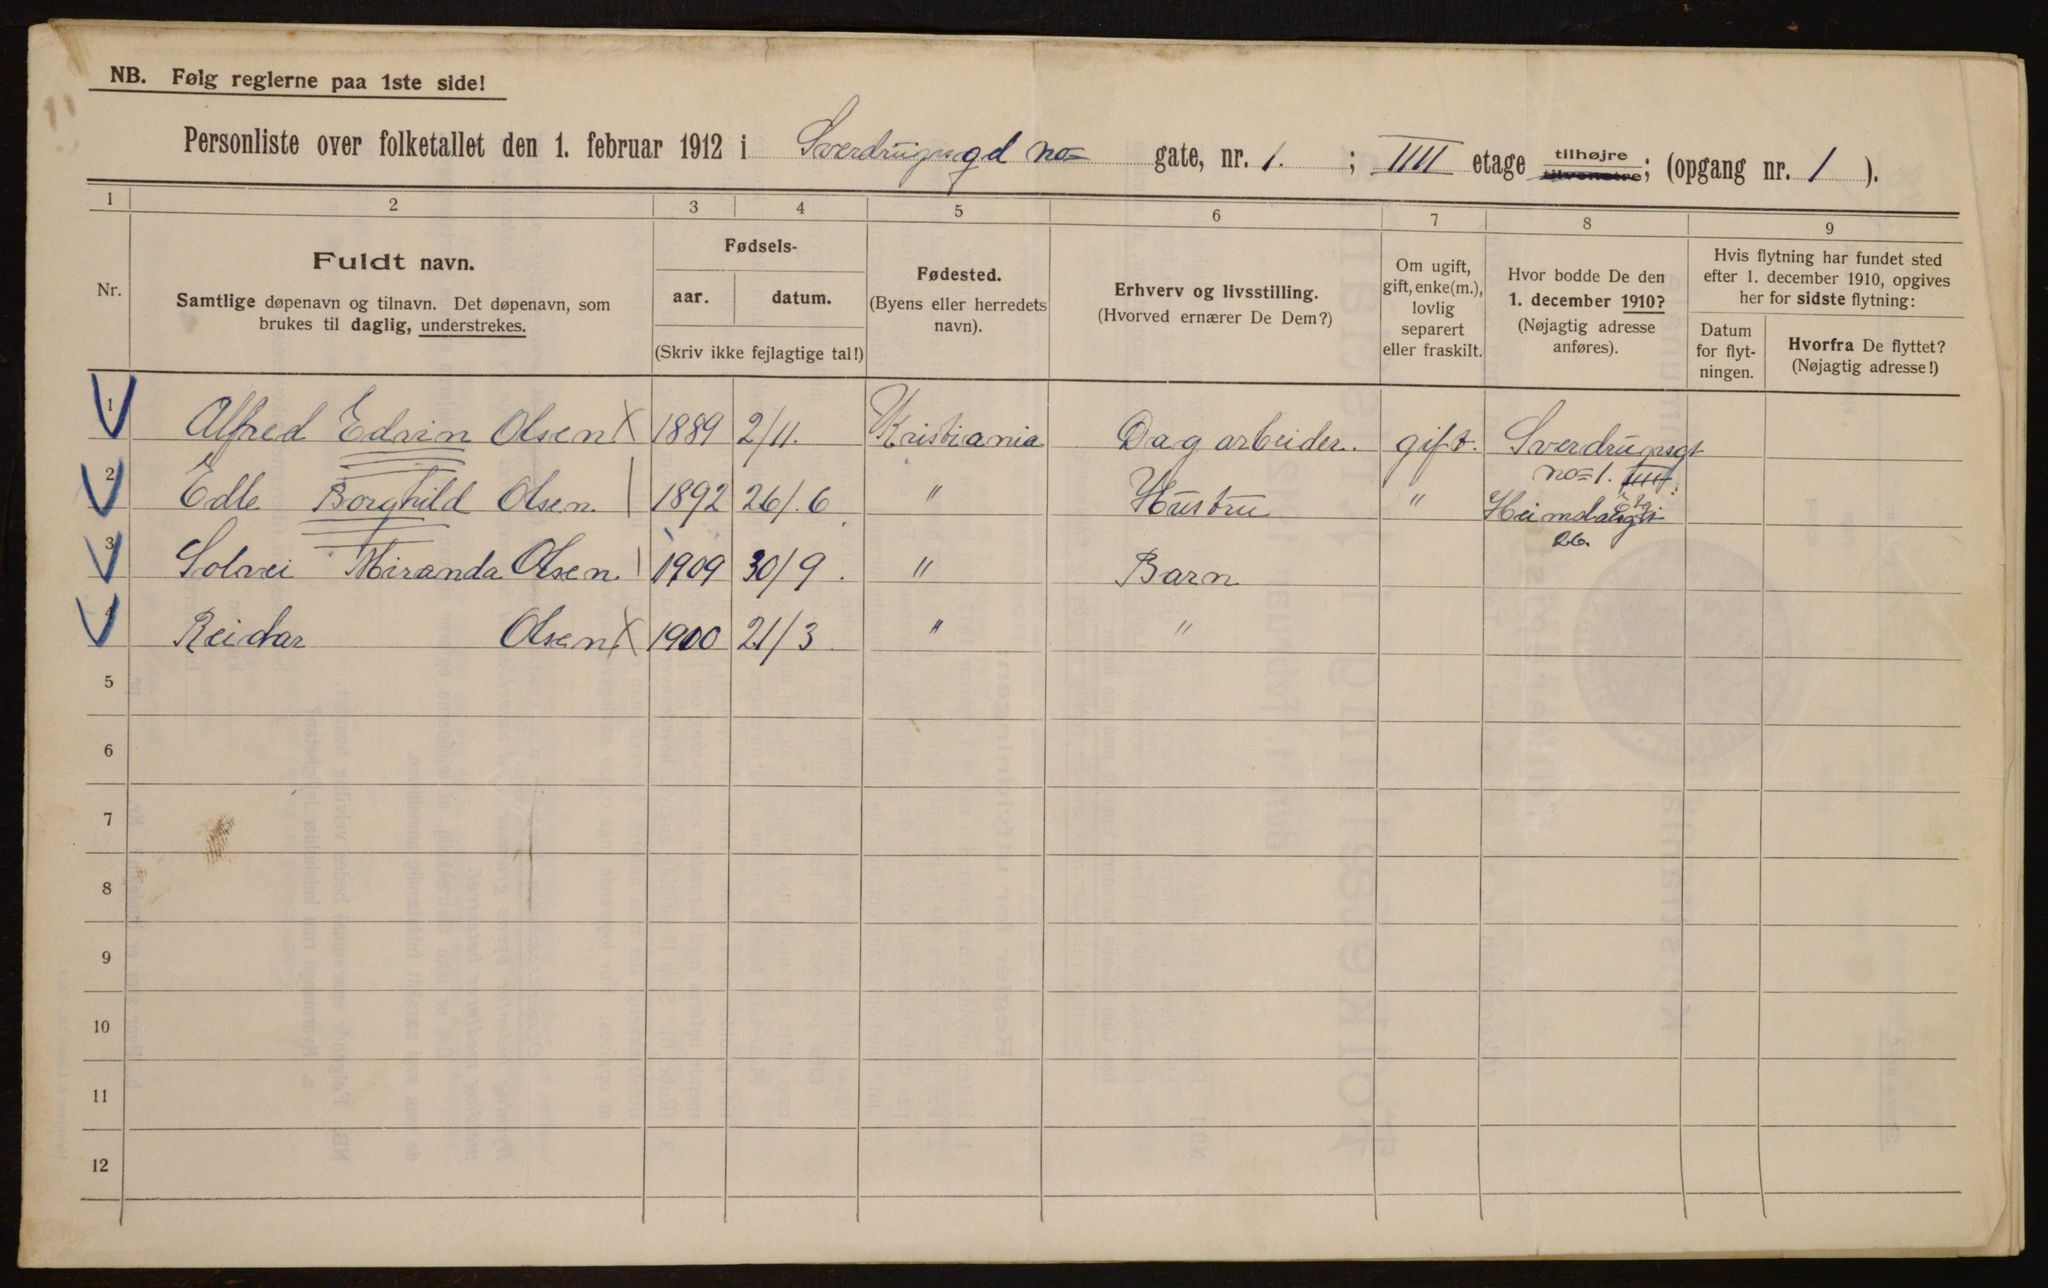 NB. Følg reglerne paa 1ste side!
Personliste over folketallet den 1. februar 1912 i Sverdrupsgd no= gate, nr. 1. ; IIII etage tilhøjre tilvenstre; (opgang nr. 1 ).
1 2 3 4 5 6 7 8 9
Nr.
Fuldt navn.
Samtlige døpenavn og tilnavn. Det døpenavn, som
brukes til daglig, understrekes.
Fødsels-
aar. datum.
(Skriv ikke fejlagtige tal!)
Fødested.
(Byens eller herredets
navn).
Erhverv og livsstilling.
(Hvorved ernærer De Dem?)
Om ugift,
gift, enke(m.),
lovlig
separert
eller fraskilt.
Hvor bodde De den
1. december 1910?
(Nøjagtig adresse
anføres).
Hvis flytning har fundet sted
efter 1. december 1910, opgives
her for sidste flytning:
Datum
for flyt-
ningen.
Hvorfra De flyttet?
(Nøjagtig adresse!)
1 Alfred Edvin Olsen X 1889 2/11. Kristiania Dag arbeider. gift. Sverdrupsgt
no=1. IIII
2 Edle Borghild Olsen. 1892 26/6 " Hustru " Heimdalsgt
26.
3 Solvei Miranda Olsen 1909 30/9. " Barn
4 Reidar Olsen X 1900 21/3 " "
5
6
7
8
9
10
11
12